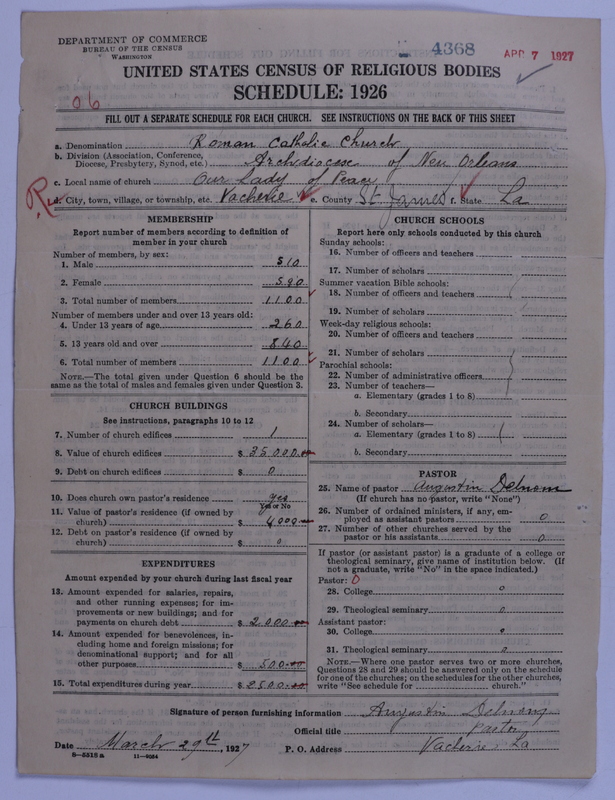 DEPARTMENT OF COMMERCE
BUREAU OF THE CENSUS
WASHINGTON
4368
APR 7 1927
UNITED STATES CENSUS OF RELIGIOUS BODIES
SCHEDULE: 1926
06
FILL OUT A SEPARATE SCHEDULE FOR EACH CHURCH. SEE INSTRUCTIONS ON THE BACK OF THIS SHEET
a. Denomination Roman Catholic Church
b. Division (Association, Conference, Diocese, Presbytery, Synod, etc.) Archdiocese of New Orleans
c. Local name of church Our Lady of Peace
R
d. City, town, village, or township, etc. Vacherie e. County St. James f. State La
MEMBERSHIP
Report number of members according to definition of member in your church
Number of members, by sex:
1. Male 510
2. Female 590
3. Total number of members 1100
Number of members under and over 13 years old:
4. Under 13 years of age 260
5. 13 years old and over 840
6. Total number of members 1100
NOTE.—The total given under Question 6 should be the same as the total of males and females given under Question 3.
CHURCH BUILDINGS
See instructions, paragraphs 10 to 12
7. Number of church edifices 1
8. Value of church edifices $ 35000.00
9. Debt on church edifices $ 0
10. Does church own pastor's residence yes
Yes or No
11. Value of pastor's residence (if owned by church) $ 4000.00
12. Debt on pastor's residence (if owned by church) $ 0
EXPENDITURES
Amount expended by your church during last fiscal year
13. Amount expended for salaries, repairs, and other running expenses; for improvements or new buildings; and for payments on church debt $ 2000.00
14. Amount expended for benevolences, including home and foreign missions; for denominational support; and for all other purposes $ 500.00
15. Total expenditures during year $ 2500.00
CHURCH SCHOOLS
Report here only schools conducted by this church
Sunday schools:
16. Number of officers and teachers
17. Number of scholars
Summer vacation Bible schools:
18. Number of officers and teachers
19. Number of scholars
Week-day religious schools:
20. Number of officers and teachers
21. Number of scholars
Parochial schools:
22. Number of administrative officers
23. Number of teachers—
a. Elementary (grades 1 to 8)
b. Secondary
24. Number of scholars—
a. Elementary (grades 1 to 8)
b. Secondary
PASTOR
25. Name of pastor Augustin
(If church has no pastor, write "None")
26. Number of ordained ministers, if any, employed as assistant pastors 0
27. Number of other churches served by the pastor or his assistants 0
If pastor (or assistant pastor) is a graduate of a college or theological seminary, give name of institution below. (If not a graduate, write "No" in the space indicated.)
Pastor: 0
28. College 0
29. Theological seminary 0
Assistant pastor:
30. College 0
31. Theological seminary 0
NOTE.—Where one pastor serves two or more churches, Questions 28 and 29 should be answered only on the schedule for one of the churches; on the schedules for the other churches, write "See schedule for church."
Signature of person furnishing information Augustin
Official title Pastor
Date March 29th, 1927 P. O. Address Vacherie La
8—5518a 11—4084